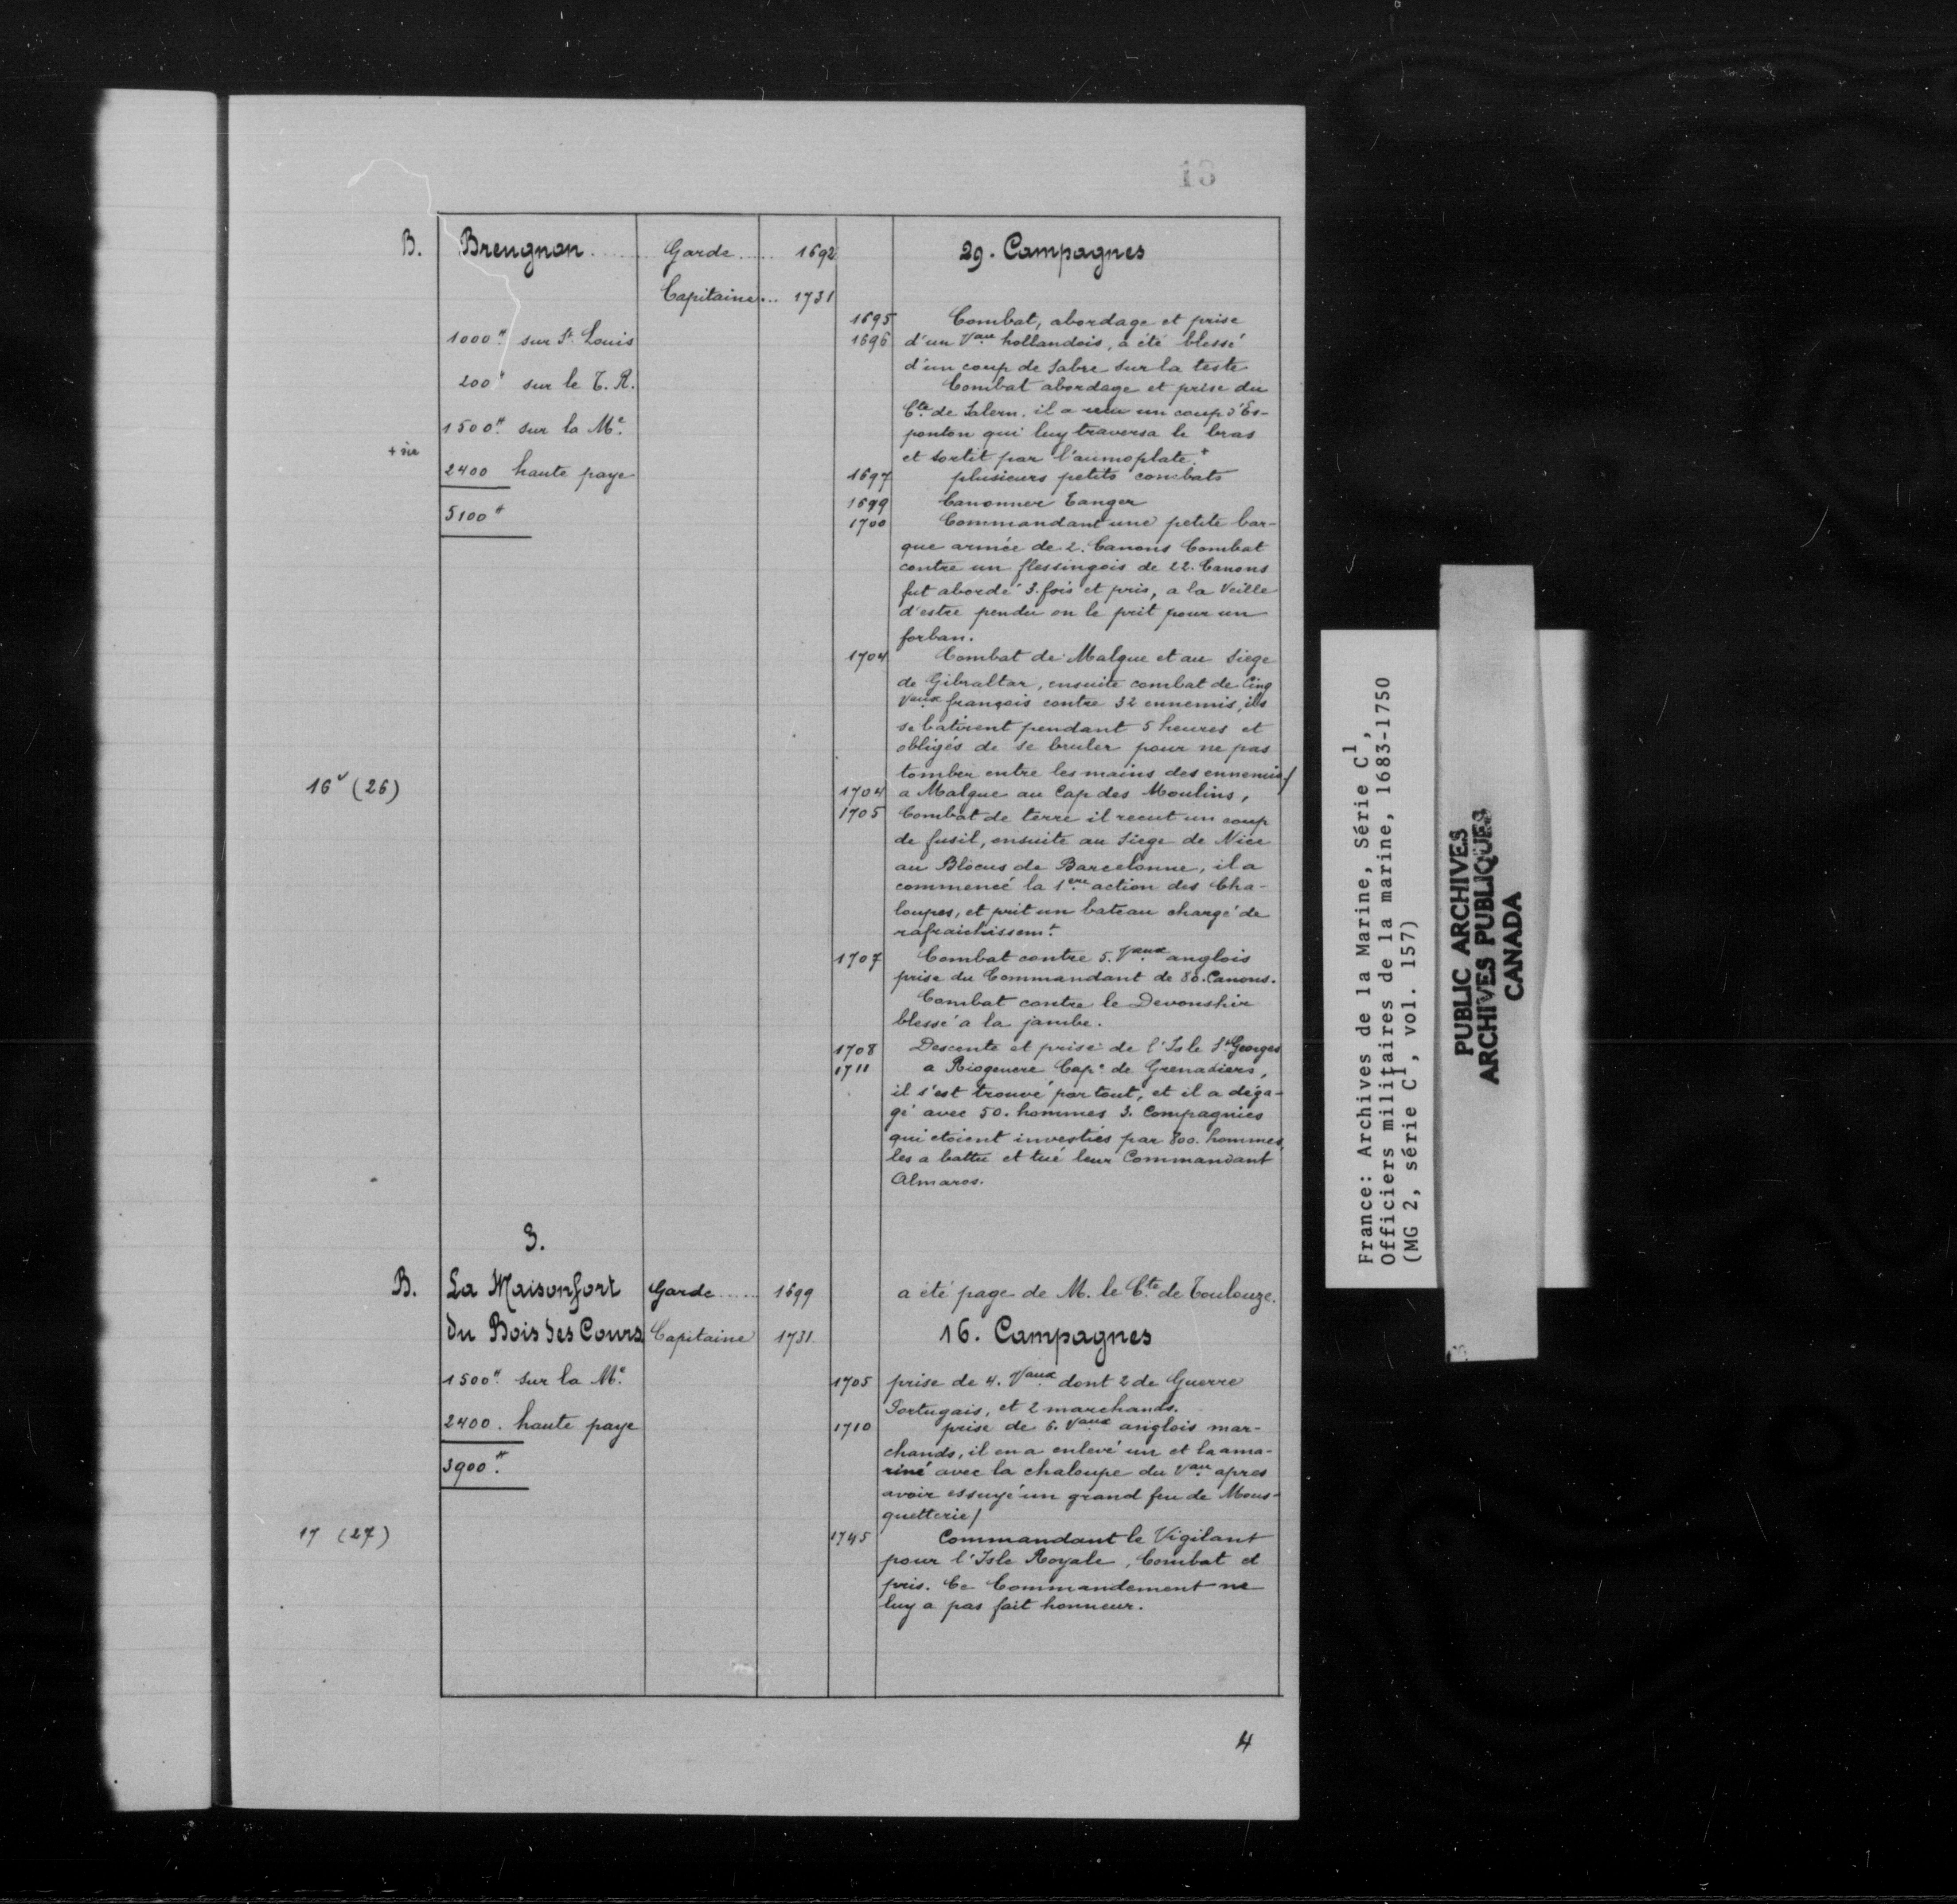 13
B. Brengnon Garde 1692 29. Campagnes
Capitaine 1731
1695 Combat, abordage et prise
1000# sur St. Louis 1696 d'un Vau hollandois, a été blessé
d'un coup de Sabre sur la teste
200# sur le T. R. Combat abordage et prise du
Cte. de Salern. il a reçu un coup d'Es-
1500# sur la Me. ponton qui luy traversa le bras
+ sic et sortit par l'aumoplate.+
2400 haute paye 1697 plusieurs petits combats
1699 Canonner Tanger
5100# 1700 Commandant une petite bar-
que armée de 2. Canons Combat
contre un flessingois de 22. Canons
fut abordé 3. fois et pris, a la Veille
d'estre pendu on le prit pour un
forban.
1704 Combat de Malgue et au Siege
de Gibraltar, ensuite combat de Cinq
Vaux françois contre 32 ennemis, ils
se batirent pendant 5 heures et
obligés de se bruler pour ne pas
tomber entre les mains des ennemis/
16v (26) 1704 a Malgue au Cap des Moulins,
1705 Combat de terre il recut un coup
de fusil, ensuite au Siege de Nice
au Blocus de Barcelonne, il a
commencé la 1ere action des Cha-
loupes, et prit un bateau chargé de
rafraichissemt.
1707 Combat contre 5. Vaux anglois
prise du Commandant de 80. Canons.
Combat contre le Devonshir
blessé a la jambe.
1708 Descente et prise de l'Isle St Georges
1711 a Riogenere Cape de Grenadiers,
il s'est trouvé partout, et il a déga-
gé avec 50. hommes 3. Compagnies
qui etoient investies par 800. hommes,
les a battu et tué leur Commandant
Almaros.
3.
B. La Maisonfort Garde 1699 a été page de M. le Cte. de Toulouze.
du Bois des Cours Capitaine 1731. 16. Campagnes
1500# sur la Me. 1705 prise de 4. Vaux dont 2 de Guerre
Portugais, et 2 marchands.
2400. haute paye 1710 prise de 6. Vaux anglois mar-
chands, il en a enlevé un et la ama-
3900# riné avec la chaloupe du Vau apres
avoir essuyé un grand feu de Mous-
quetterie/
17 (27) 1745 Commandant le Vigilant
pour l'Isle Royale, Combat et
pris. Ce Commandement ne
luy a pas fait honneur.
4
France: Archives de la Marine, Série C1,
Officiers militaires de la marine, 1683-1750
(MG 2, série C1, vol. 157)
PUBLIC ARCHIVES
ARCHIVES PUBLIQUES
CANADA